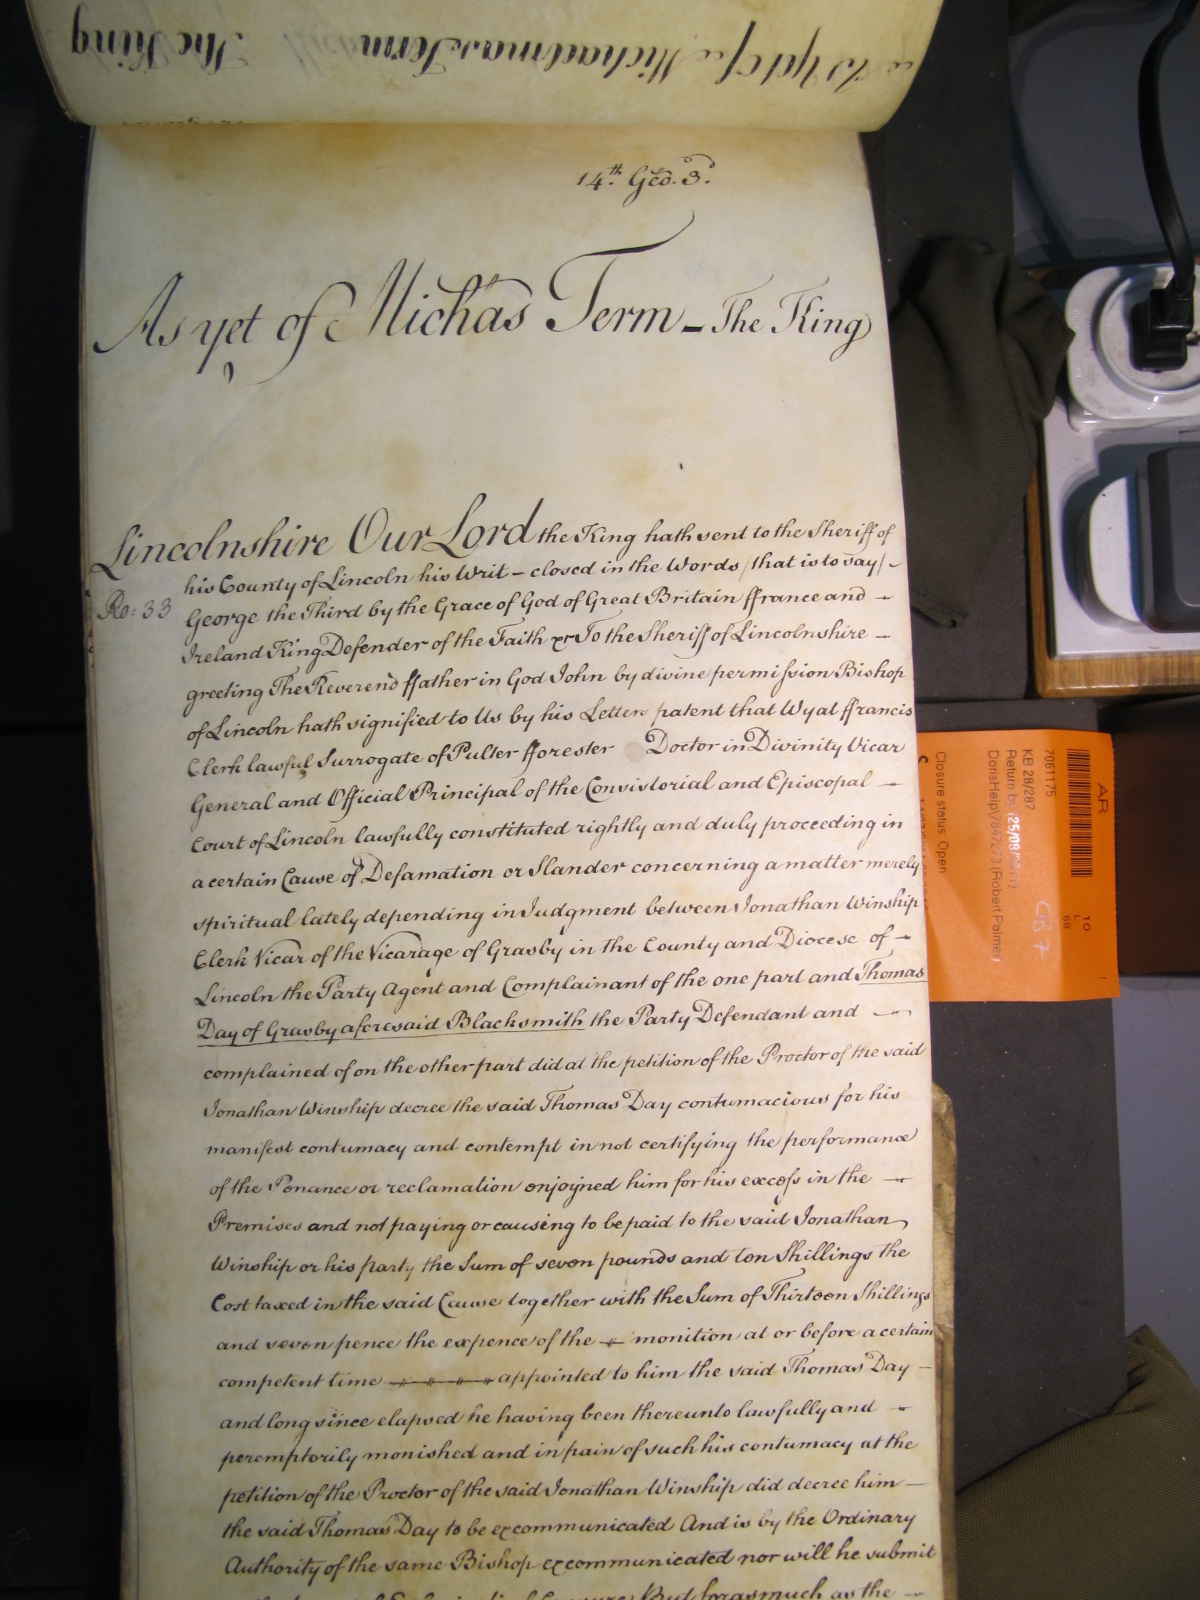 As yet of Michaelmas Term The King
14th. Geo. 3d.
As yet of Mich'as Term - The King
Lincolnshire Our Lord the King hath sent to the Sheriff of
his County of Lincoln his Writ - closed in the Words /that is to say/ -
Ro: 33
George the Third by the Grace of God of Great Britain ffrance and -
Ireland King Defender of the Faith &c To the Sheriff of Lincolnshire -
greeting The Reverend ffather in God John by divine permission Bishop
of Lincoln hath signified to Us by his Letters patent that Wyat ffrancis
Clerk lawful Surrogate of Pulter fforester Doctor in Divinity Vicar
General and Official Principal of the Consistorial and Episcopal -
Court of Lincoln lawfully constituted rightly and duly proceeding in
a certain Cause of Defamation or Slander concerning a matter merely
spiritual lately depending in Judgment between Jonathan Winship
Clerk Vicar of the Vicarage of Grasby in the County and Diocese of -
Lincoln the Party Agent and Complainant of the one part and Thomas
Day of Grasby aforesaid Blacksmith the Party Defendant and -
complained of on the other part did at the petition of the Proctor of the said
Jonathan Winship decree the said Thomas Day contumacious for his
manifest contumacy and contempt in not certifying the performance
of the Penance or reclamation enjoyned him for his excess in the -
Premises and not paying or causing to be paid to the said Jonathan
Winship or his party the Sum of seven pounds and ten Shillings the
Cost taxed in the said Cause together with the Sum of Thirteen Shillings
and seven pence the expence of the - monition at or before a certain
competent time - appointed to him the said Thomas Day -
and long since elapsed he having been thereunto lawfully and -
peremptorily monished and in pain of such his contumacy at the
petition of the Proctor of the said Jonathan Winship did decree him -
the said Thomas Day to be excommunicated And is by the Ordinary
Authority of the same Bishop excommunicated nor will he submit
But forasmuch as the -
AR
7061175
KB 28/287
Return by (25/08/
DorisHelp\7847273 (Robert Palmer)
Closure status: Open
TO
L
68